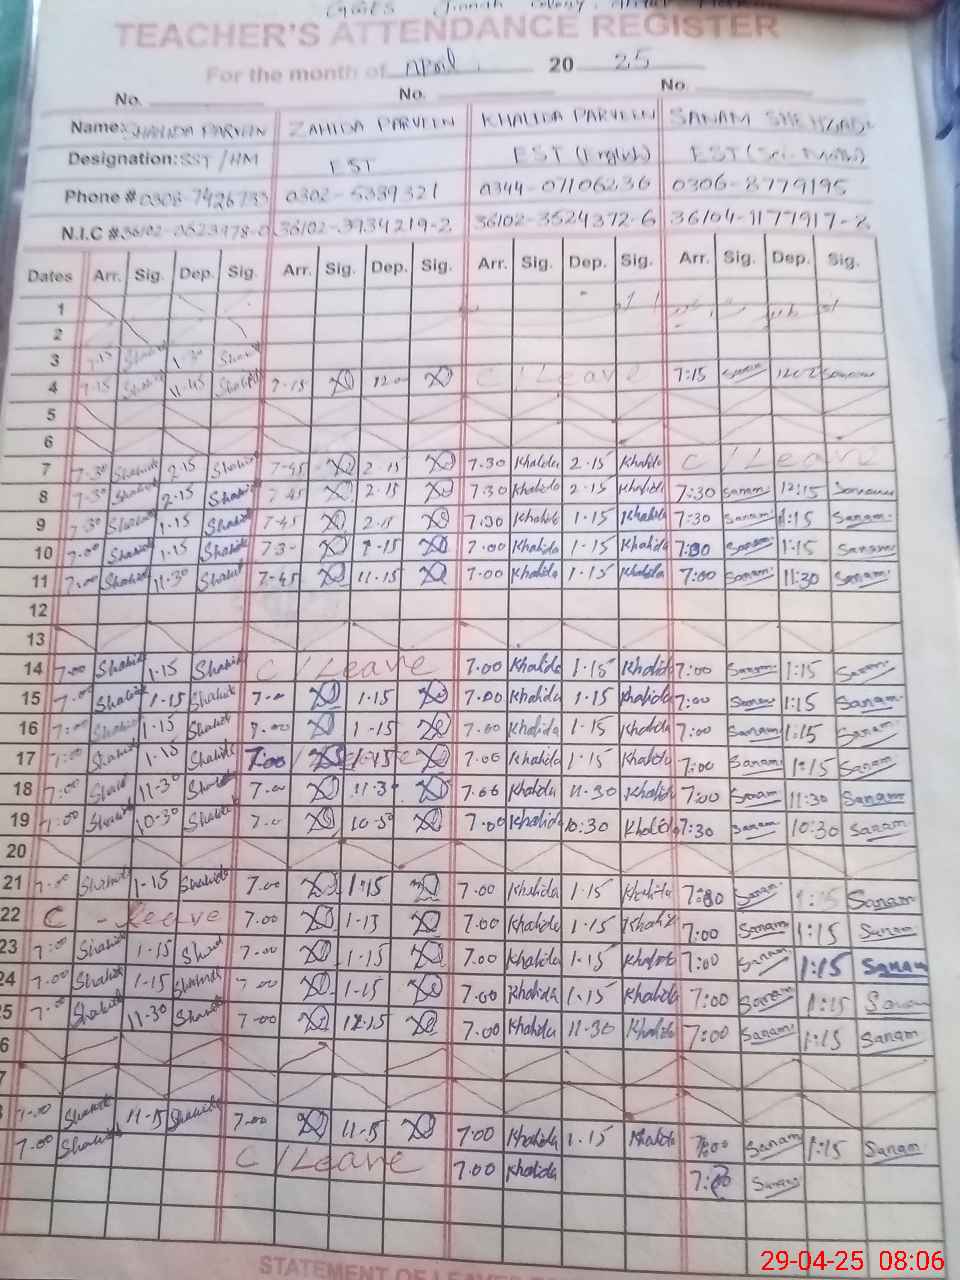 GGES Jinnah Colony,
TEACHER'S ATTENDANCE REGISTER
For the month of April. 20 25
No. No. No.
Name: SHAHIDA PARVEEN ZAHIDA PARVEEN KHALIDA PARVEEN SANAM SHEHZADI
Designation: SST/HM EST EST (English) EST (Sci-Math)
Phone # 0302-5339321 0344-07106236 0306-8779195
N.I.C # 36102-0623978-0 36102-3934219-2 36102-3524372-6 36104-1177917-2
Dates Arr. Sig. Dep. Sig. Arr. Sig. Dep. Sig. Arr. Sig. Dep. Sig. Arr. Sig. Dep. Sig.
1
2
3 7.15 Shahida 1-30 Shahida
4 7-15 Shahida 11-45 Shahida 7-15 12.00 C/Leave 7:15 Sanam Sanam
5
6
7 7-30 Shahida 2.15 Shahida 7-45 2.15 7.30 Khalida 2.15 Khalida C/Leave
8 7-30 Shahida 2.15 Shahida 7.45 2.15 7.30 Khalida 2.15 Khalida 7:30 Sanam 12:15 Sanam
9 7.30 Shahida 1.15 Shahida 7-45 2.15 7.30 Khalida 1.15 Khalida 7:30 Sanam 1:15 Sanam
10 7.00 Shahida 1.15 Shahida 7.00 Khalida 1.15 Khalida 7:00 Sanam 1:15 Sanam
11 7.00 Shahida 11-30 Shahida 7-45 11.15 7.00 Khalida 1.15 Khalida 7:00 Sanam 11:30 Sanam
12
13
14 7.00 Shahida 1.15 Shahida C/Leave 7.00 Khalida 1.15 Khalida 7:00 Sanam 1:15 Sanam
15 7.00 Shahida 1-15 Shahida 7.00 1.15 7.00 Khalida 1.15 Khalida 7:00 Sanam 1:15 Sanam
16 7.00 Shahida 1.15 Shahida 7.00 1-15 7.00 Khalida 1.15 Khalida 7:00 Sanam 1:15 Sanam
17 7:00 Shahida 1.15 Shahida 7:00 1-15 7.00 Khalida 1.15 Khalida 7:00 Sanam 1:15 Sanam
18 7:00 Shahida 11-30 Shahida 7.00 11.30 7.00 Khalida 11.30 Khalida 7:00 Sanam 11:30 Sanam
19 7.00 Shahida 10-30 Shahida 7.0 10.30 7.00 Khalida 10:30 Khalida 7:30 Sanam 10:30 Sanam
20
21 7.00 Shahida 1-15 Shahida 7.00 1:15 7.00 Khalida 1.15 Khalida 7:00 Sanam 1:15 Sanam
22 C - Leave 7.00 1-15 7.00 Khalida 1.15 Khalida 7:00 Sanam 1:15 Sanam
23 7:00 Shahida 1-15 Shahida 7.00 1-15 7.00 Khalida 1.15 Khalida 7:00 Sanam 1:15 Sanam
24 7.00 Shahida 1-15 Shahida 7.00 1-15 7.00 Khalida 1.15 Khalida 7:00 Sanam 1:15 Sanam
25 7.00 Shahida 11-30 Shahida 7-00 12.15 7.00 Khalida 11.30 Khalida 7:00 Sanam 1:15 Sanam
6
7
8 7-00 Shahida 11-15 Shahida 7.00 11-15 7.00 Khalida 1.15 Khalida 7:00 Sanam 1:15 Sanam
7.00 Shahida C/Leave 7.00 Khalida 7:00 Sanam
29-04-25 08:06